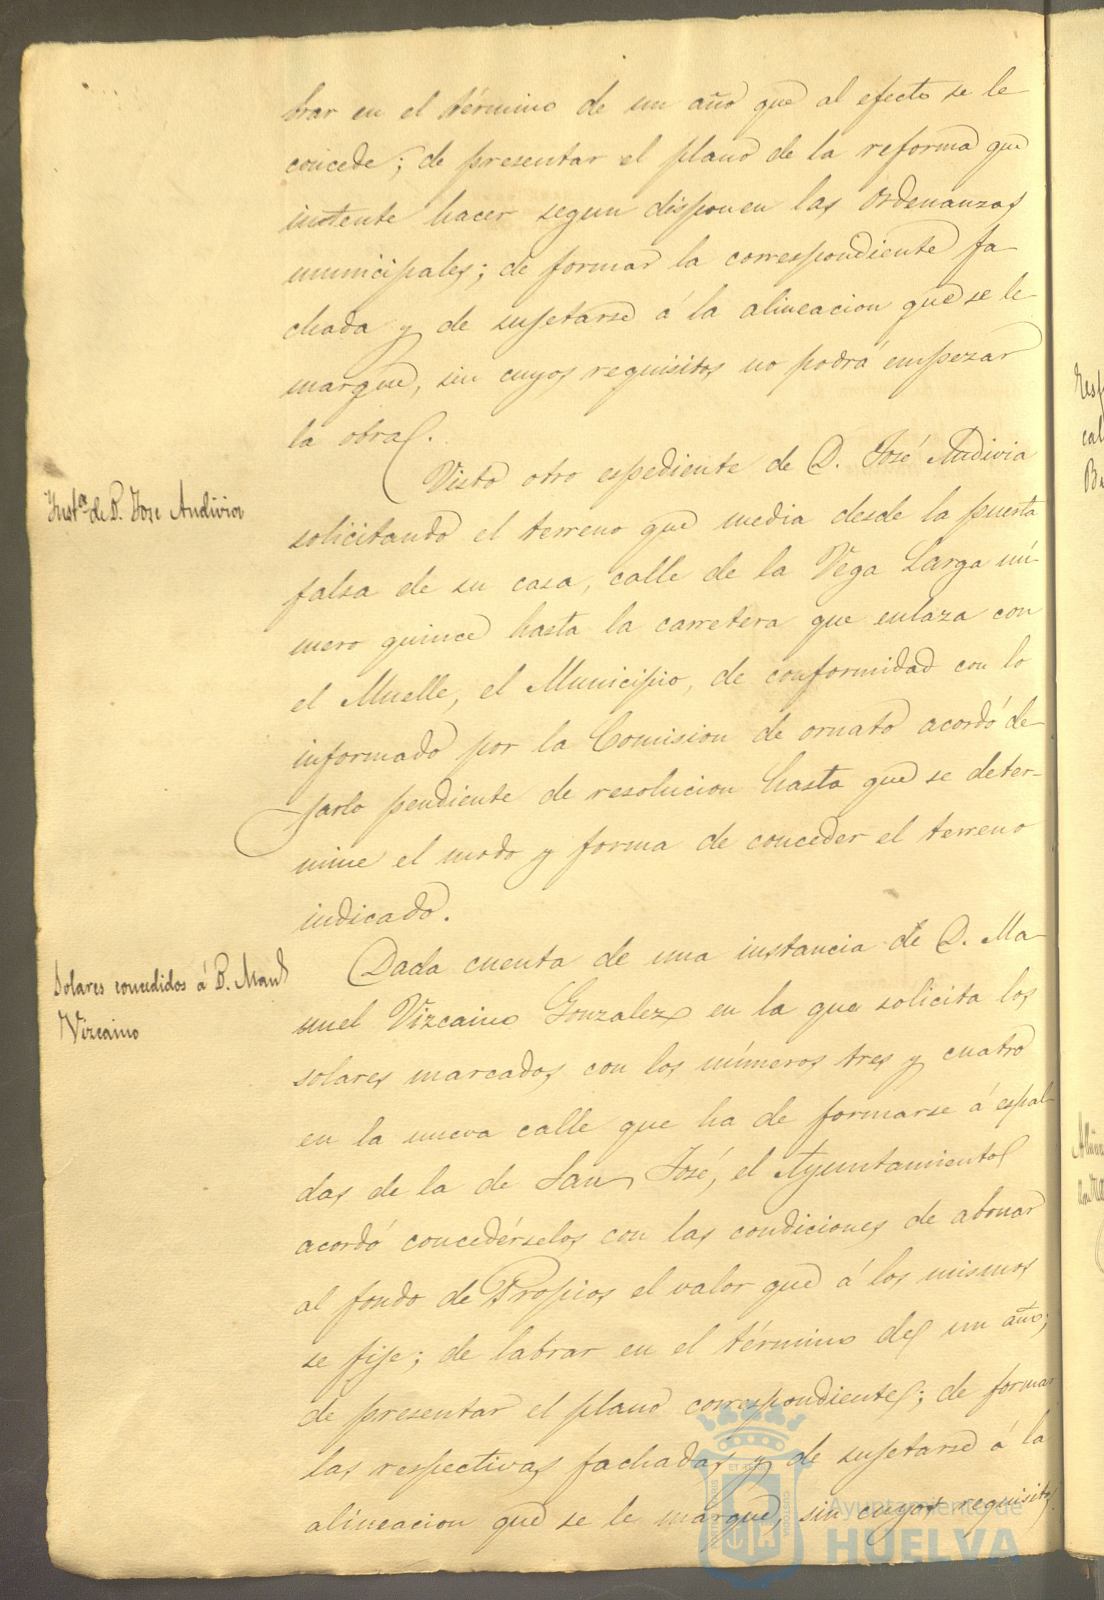 brar en el término de un año que al efecto se le
concede; de presentar el plano de la reforma que
intente hacer segun disponen las Ordenanzas
municipales; de formar la correspondiente fa-
chada y de sujetarse á la alineacion que se le
marque, sin cuyos requisitos no podrá empezar
la obra.
Visto otro espediente de D. José Andivia
Inst.ª de D. Jose Andivia
solicitando el terreno que media desde la puerta
falsa de su casa, calle de la Vega Larga nú-
mero quince hasta la carretera que enlaza con
el Muelle, el Municipio, de conformidad con lo
informado por la Comision de ornato acordó de-
jarlo pendiente de resolucion hasta que se deter-
mine el modo y forma de conceder el terreno
indicado.
Dada cuenta de una instancia de D. Ma-
Solares concedidos á D. Manl
Vizcaino
nuel Vizcaino Gonzalez en la que solicita los
solares marcados con los números tres y cuatro
en la nueva calle que ha de formarse á espal-
das de la de San José, el Ayuntamiento
acordó concedérselos con las condiciones de abonar
al fondo de Propios el valor que á los mismos
se fije; de labrar en el término de un año;
de presentar el plano correspondiente; de formar
las respectivas fachadas y de sujetarse á la
alineacion que se le marque, sin cuyos requisitos
Ayuntamiento de
HUELVA